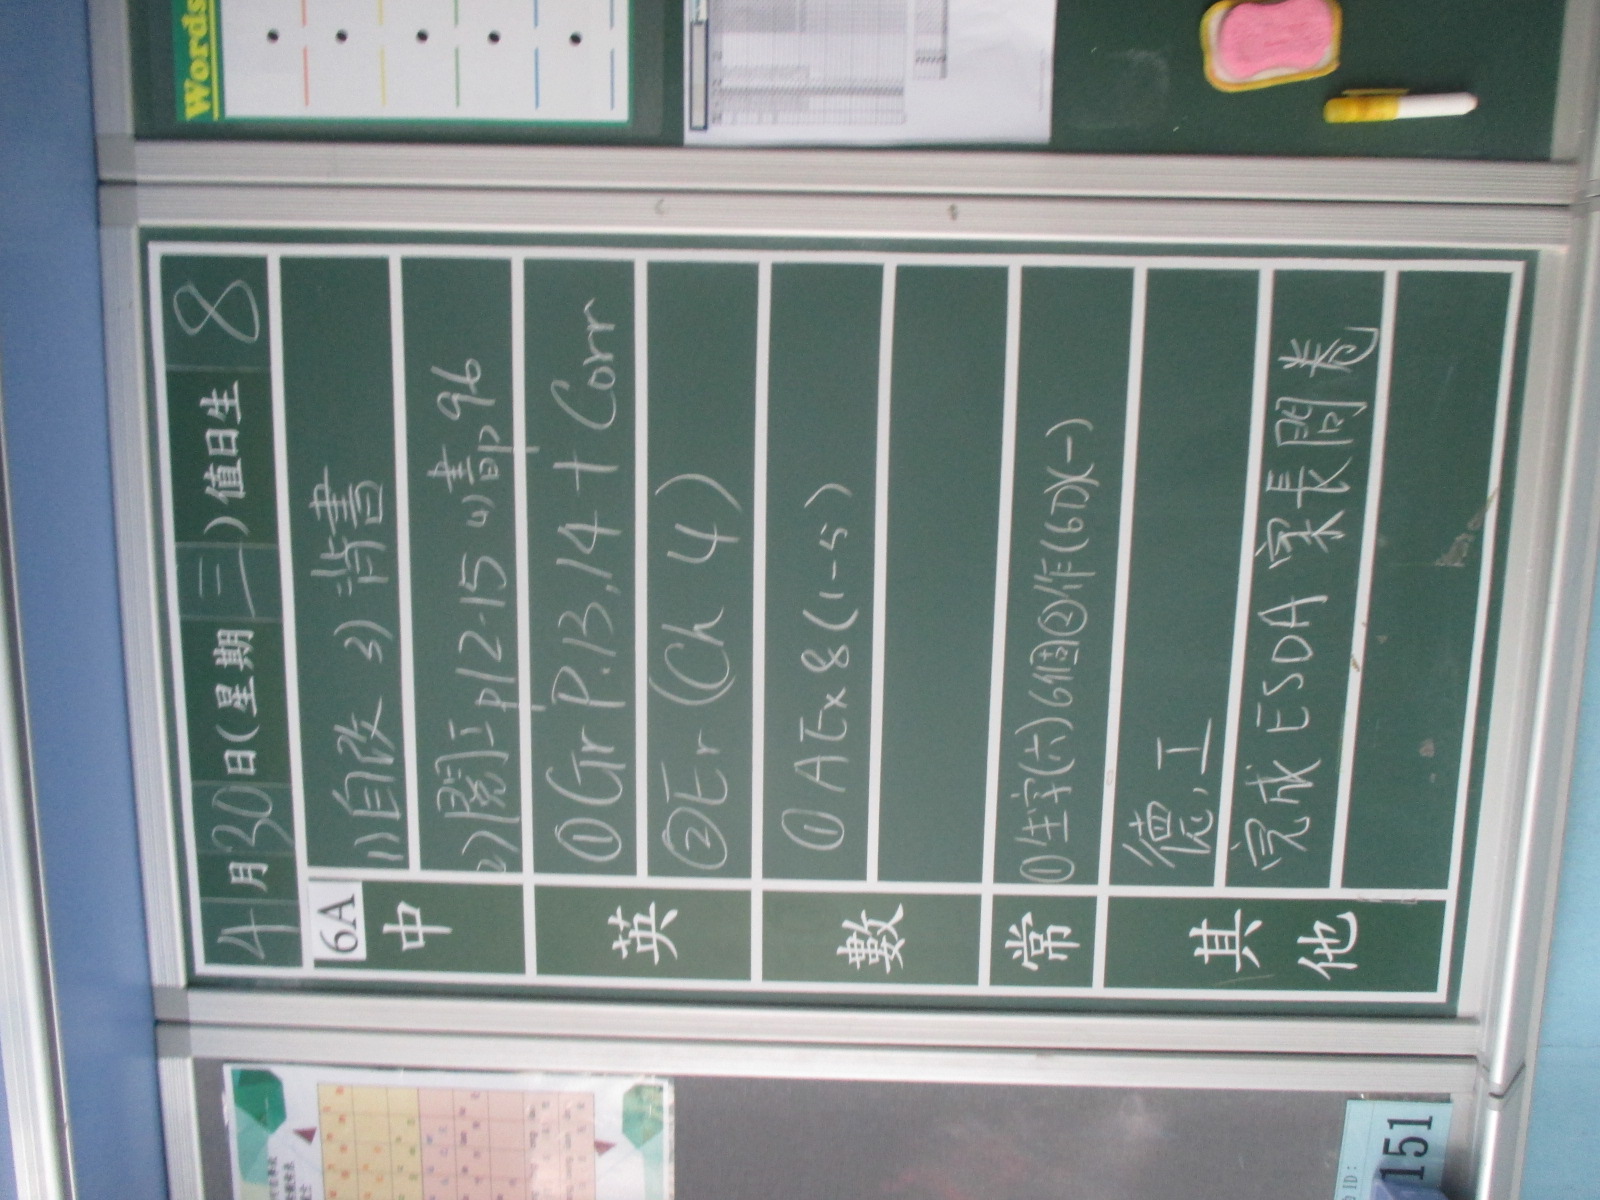 4月30日(星期三)值日生 8
6A
中
1)自改 3)背書
2)閱工p12-15 4)書p96
英
①Gr P.13,14 + Corr
②Er (Ch 4)
數
①A Ex 8 (1-5)
常
①生字(六)6個②作(6D)(一)
其他
德,工
完成ESDA 家長問卷
Words
151